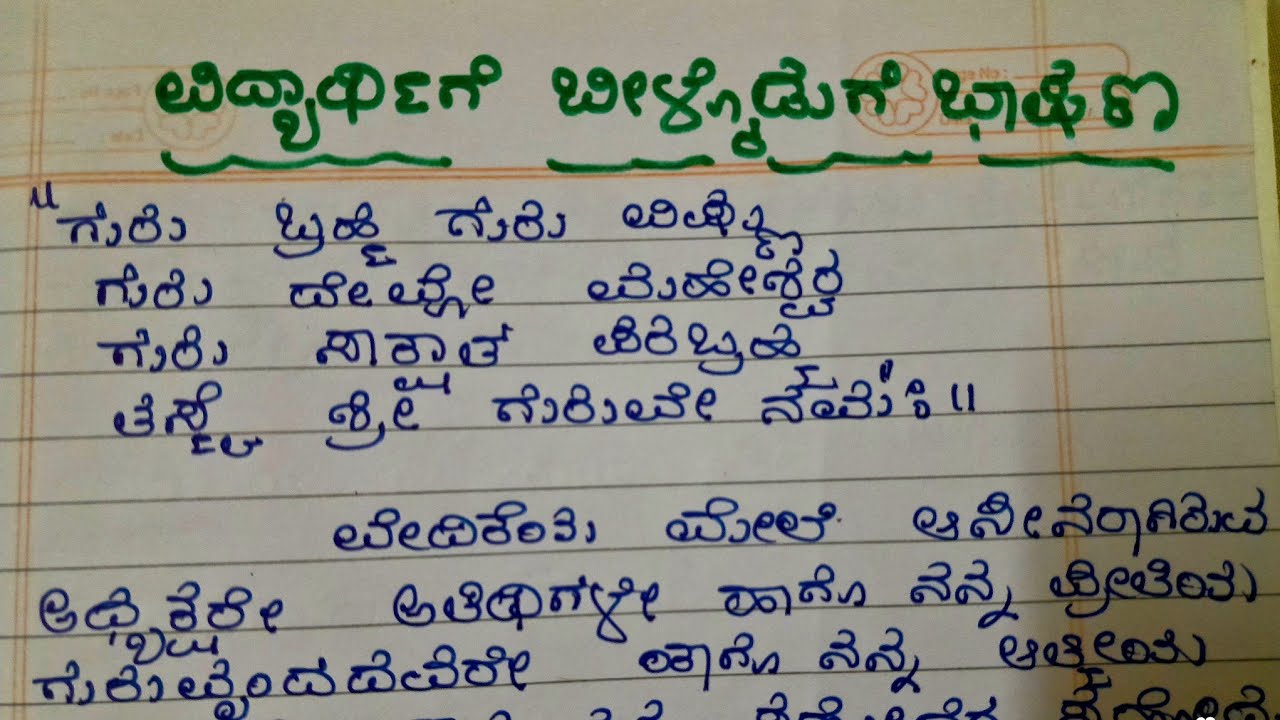 ವಿದ್ಯಾರ್ಥಿಗೆ ಬೀಳ್ಕೊಡುಗೆ ಭಾಷಣ
"ಗುರು ಬ್ರಹ್ಮ ಗುರು ವಿಷ್ಣು
ಗುರು ದೇವೋ ಮಹೇಶ್ವರ
ಗುರು ಸಾಕ್ಷಾತ ಪರಬ್ರಹ್ಮ
ತಸ್ಮೈ ಶ್ರೀ ಗುರುವೇ ನಮಃ॥
ವೇದಿಕೆಯ ಮೇಲೆ ಆಸೀನರಾಗಿರುವ
ಅಧ್ಯಕ್ಷರೇ ಅತಿಥಿಗಳೇ ಹಾಗೂ ನನ್ನ ಪ್ರೀತಿಯ
ಗುರುವೃಂದದವರೇ ಹಾಗೂ ನನ್ನ ಆತ್ಮೀಯ